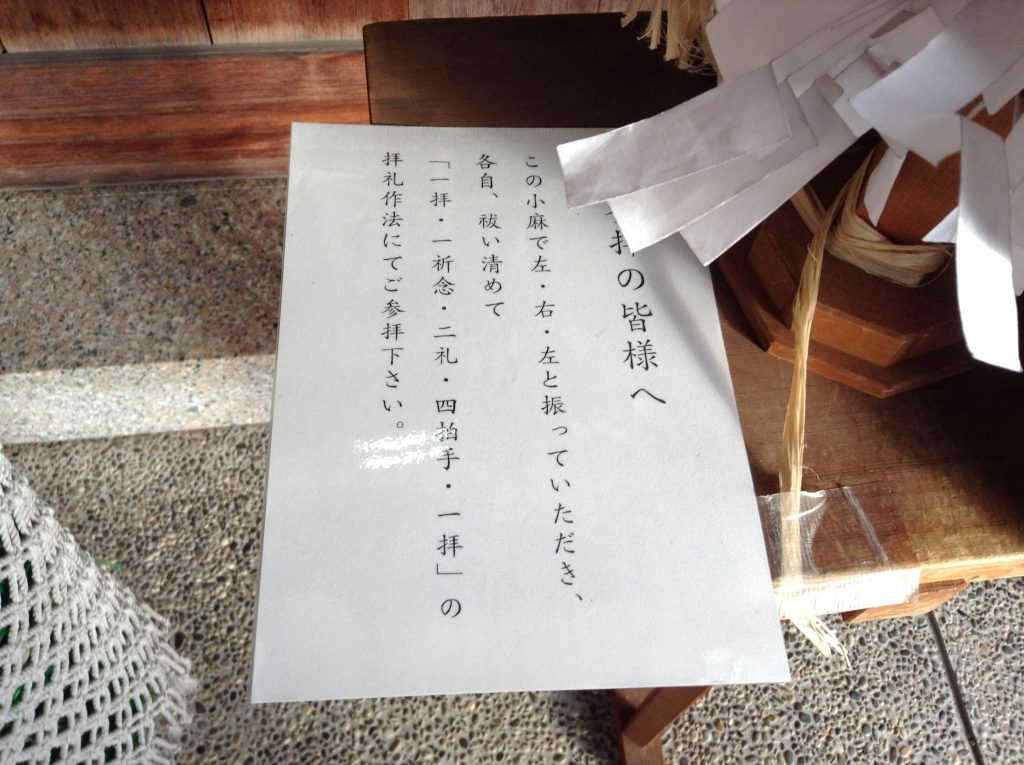 拝の皆様へ
この小麻で左・右・左と振っていただき、
各自、祓い清めて
「一拝・一祈念・二礼・四拍手・一拝」の
拝礼作法にてご参拝下さい。